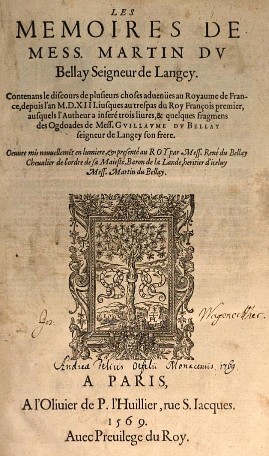 LES
MEMOIRES DE
MESS. MARTIN DV
Bellay Seigneur de Langey.
Contenans le discours de plusieurs choses aduenües au Royaume de Fran-
ce, depuis l'an M.D.XIII. iusques au trespas du Roy François premier,
ausquels l'Autheur a inseré trois liures, & quelques fragmens
des Ogdoades de Mess. GVILLAVME DV BELLAY
seigneur de Langey son frere.
Oeuure mis nouuellemẽt en lumiere, & presenté au ROY par Mess. René du Bellay
Cheualier de l'ordre de sa Maiesté, Baron de la Lande, heritier d'iceluy
Mess. Martin du Bellay.
Andrea Felius Monacensis 1769
A PARIS,
A l'Oliuier de P. l'Huillier, rue S. Iacques.
1569.
Auec Preuilege du Roy.